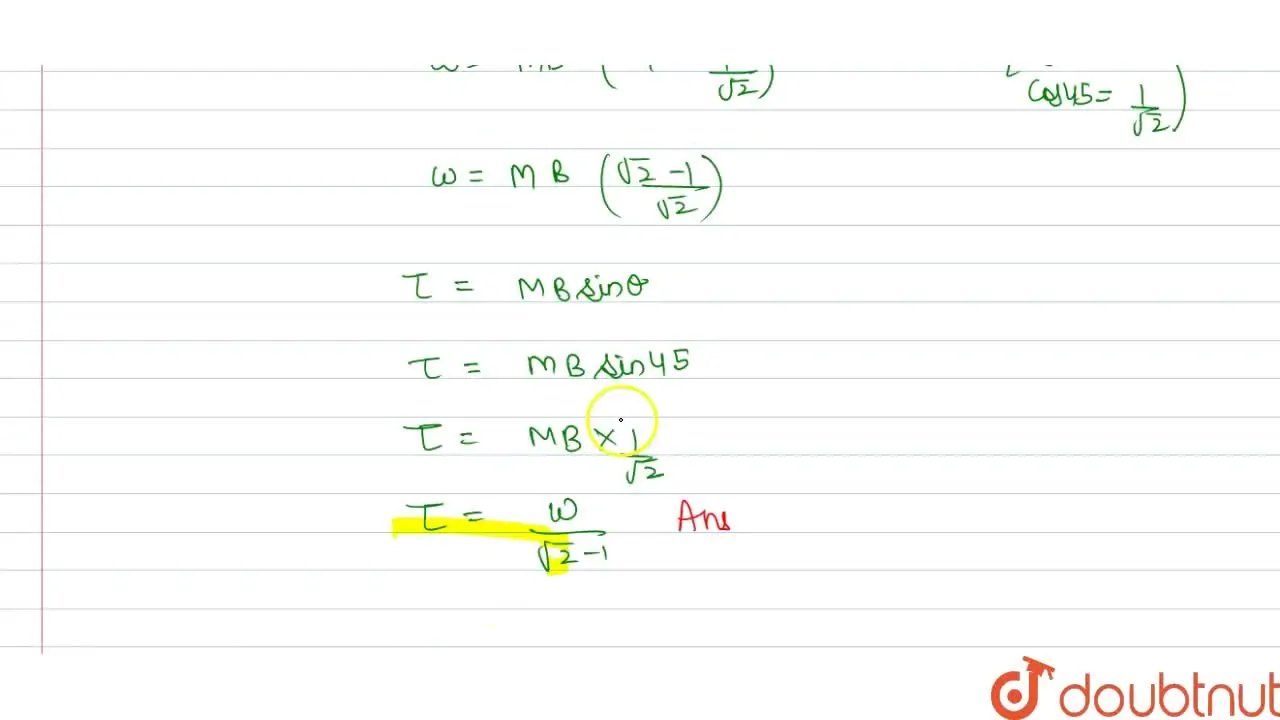 cos45 = 1/√2)
W = MB (√2 - 1/√2)
τ = MB sinθ
τ = MB sin45
τ = MB × 1/√2
τ = W/√2 - 1 Ans
doubtnut